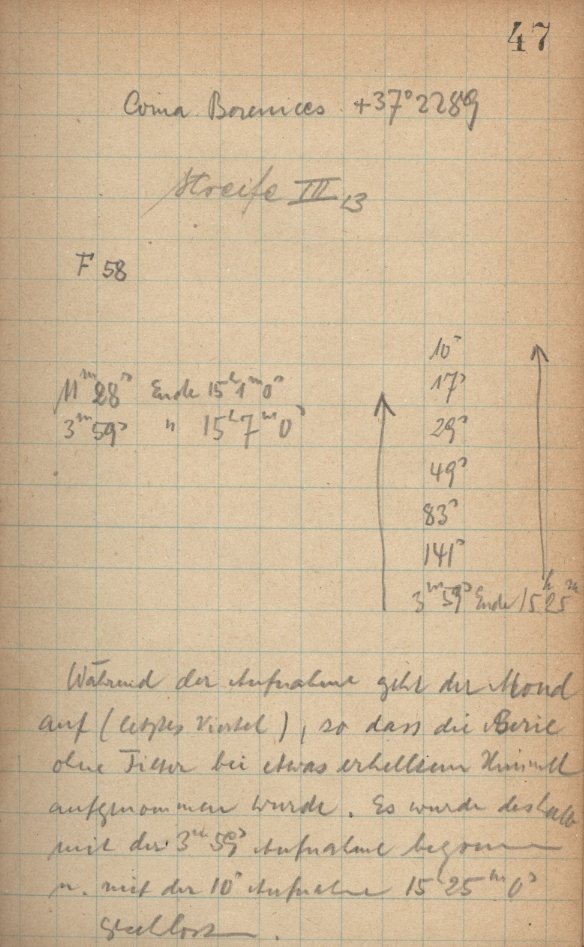 47
Coma Berenices +37°2289
Streife III 13
F 58
11ᵐ28ˢ Ende 15ʰ1ᵐ0ˢ
3ᵐ59ˢ " 15ʰ7ᵐ0ˢ
10ˢ
17ˢ
29ˢ
49ˢ
83ˢ
141ˢ
3ᵐ59ˢ Ende 15ʰ25ᵐ
Während der Aufnahme geht der Mond
auf (letztes Viertel), so dass die Serie
ohne Filter bei etwas erhelltem Himmel
aufgenommen wurde. Es wurde deshalb
mit der 3ᵐ59ˢ Aufnahme begonnen
u. mit der 10ˢ Aufnahme 15ʰ25ᵐ0ˢ
geschlossen.